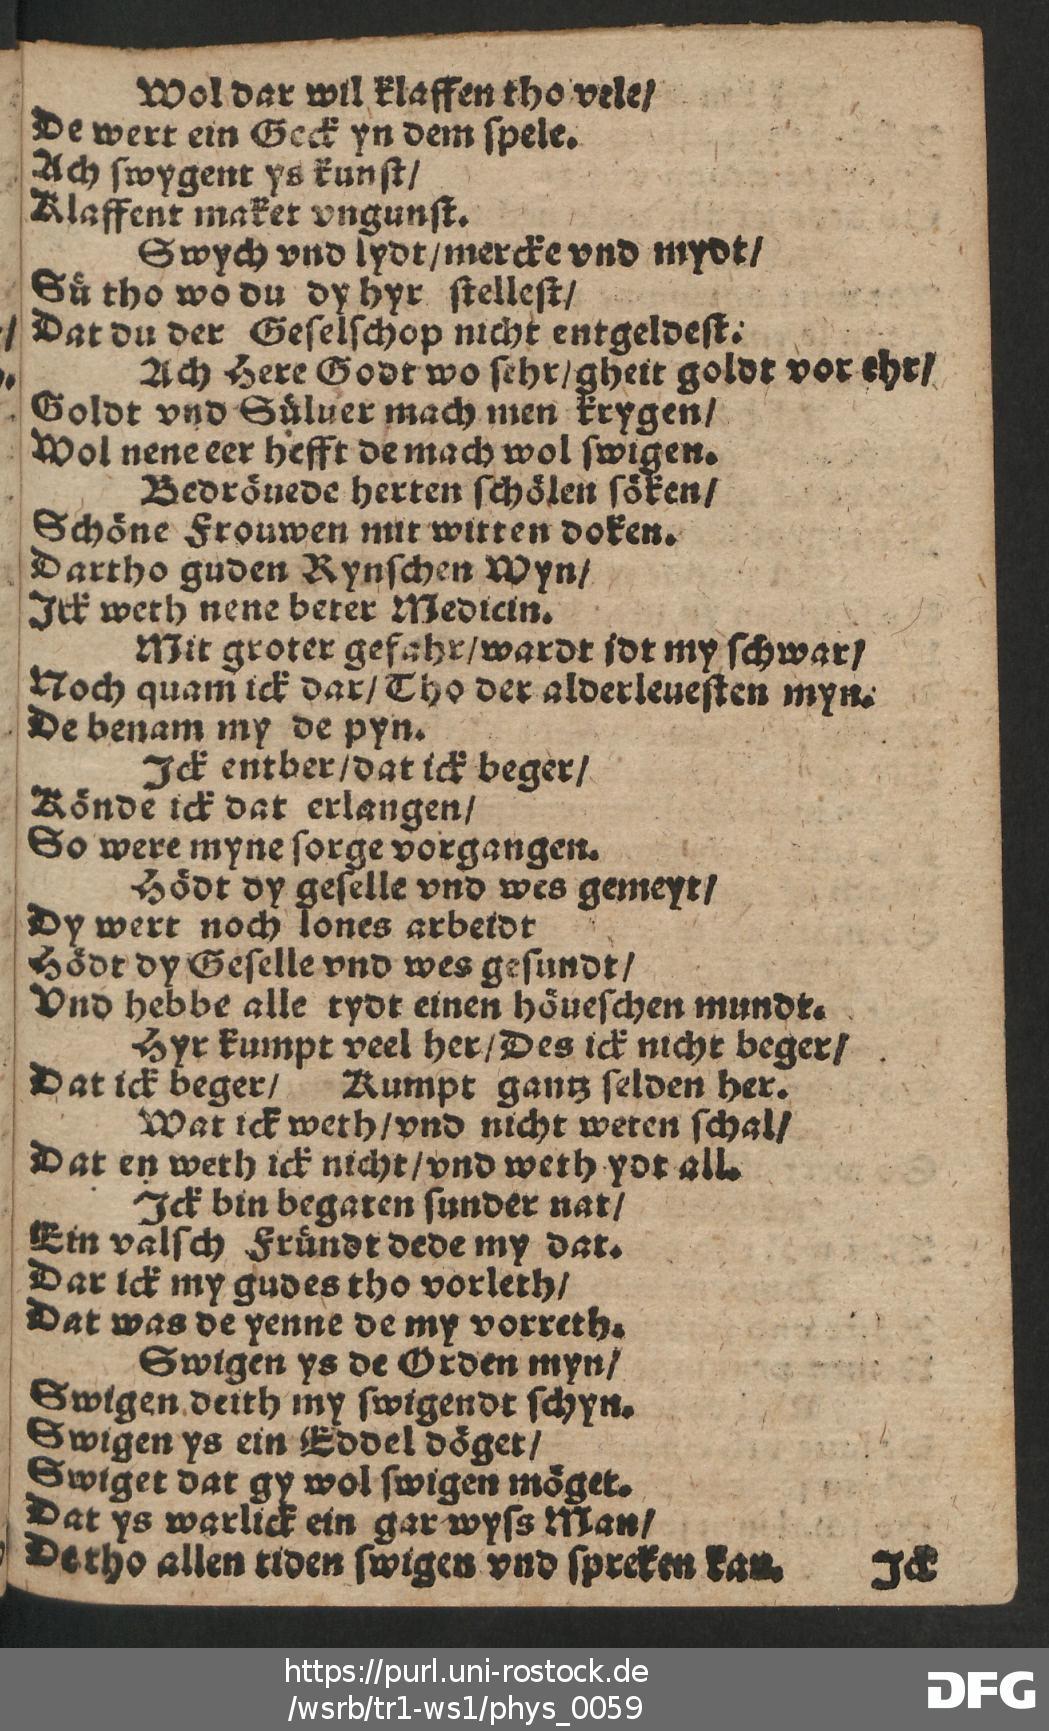 Wol dar wil klaffen tho vele/
De wert ein Geck yn dem spele.
Ach swygent ys kunst/
Klaffent maket vngunst.
Swych vnd lydt/mercke vnd mydt/
Sü tho wo du dy hyr stellest/
Dat du der Geselschop nicht entgeldest.
Ach Here Godt wo sehr/gheit goldt vor ehr/
Goldt vnd Süluer mach men krygen/
Wol nene eer hefft de mach wol swigen.
Bedröuede herten schölen söken/
Schöne Frouwen mit witten doken.
Dartho guden Rynschen Wyn/
Jck weth nene beter Medicin.
Mit groter gefahr/wardt idt my schwar/
Noch quam ick dar/Tho der alderleuesten myn.
De benam my de pyn.
Jck entber/dat ick beger/
Könde ick dat erlangen/
So were myne sorge vorgangen.
Hödt dy geselle vnd wes gemeyt/
Dy wert noch lones arbeidt
Hödt dy Geselle vnd wes gesundt/
Vnd hebbe alle tydt einen höueschen mundt.
Hyr kumpt veel her/Des ick nicht beger/
Dat ick beger/ Kumpt gantz selden her.
Wat ick weth/vnd nicht weten schal/
Dat en weth ick nicht/vnd weth ydt all.
Jck bin begaten sunder nat/
Ein valsch Fründt dede my dat.
Dar ick my gudes tho vorleth/
Dat was de yenne de my vorreth.
Swigen ys de Orden myn/
Swigen deith my swigendt schyn.
Swigen ys ein Eddel döget/
Swiget dat gy wol swigen möget.
Dat ys warlick ein gar wyss Man/
De tho allen tiden swigen vnd spreken kan.
Jck
https://purl.uni-rostock.de
/wsrb/tr1-ws1/phys_0059
DFG